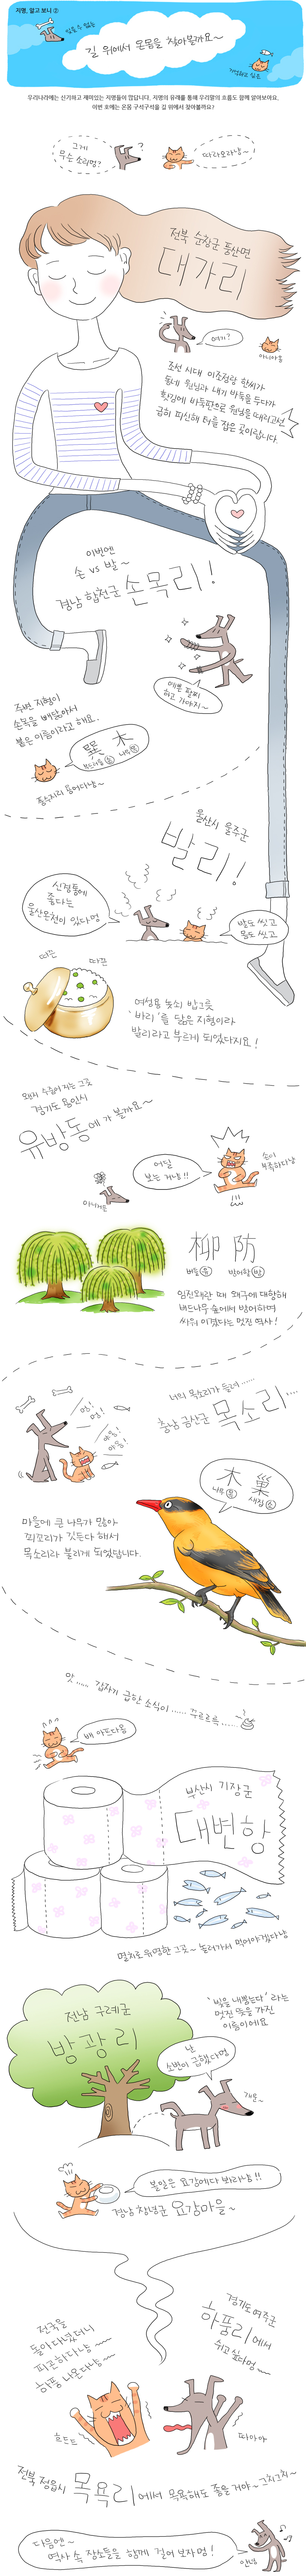 지명, 알고 보니 ②
길 위에서 온몸을 찾아볼까요~
우리나라에는 신기하고 재미있는 지명들이 많답니다. 지명의 유래를 통해 우리말의 흐름도 함께 알아보아요.
이번 호에는 온몸 구석구석을 길 위에서 찾아볼까요?
그게
무슨 소리멍?
따라오라냥~
전북 순창군 풍산면
대가리
여기?
아니야옹
조선 시대 이조정랑 한씨가
동네 원님과 내기 바둑을 두다가
홧김에 바둑판으로 원님을 때리고선
급히 피신해 터를 잡은 곳이랍니다.
이번엔
손 vs 발~
경남 합천군 손목리!
예쁜 팔찌
하고 가야지~
주변 지형이
손목을 빼닮아서
붙은 이름이라고 해요.
巽 木
부드러울 손 나무 목
풍수지리 용어다냥~
울산시 울주군
발리!
신경통에
좋다는
울산온천이 있다멍
발도 씻고
몸도 씻고
여성용 놋쇠 밥그릇
'바리'를 닮은 지형이라
발리라고 부르게 되었다지요!
경기도 용인시
유방동에 가 볼까요~
어딜
보는 거냥!!
아니거든
柳 防
버들 유 방어할 방
임진왜란 때 왜구에 대항해
버드나무 숲에서 방어하며
싸워 이겼다는 멋진 역사!
너의 목소리가 들려……
충남 금산군 목소리….
멍!
멍!
야옹!
야옹!
木 巢
나무 목 새집 소
마을에 큰 나무가 많아
꾀꼬리가 깃든다 해서
목소리라 불리게 되었답니다.
앗…… 갑자기 급한 소식이 …… 꾸르르륵……
배 아프다옹
부산시 기장군
대변항
멸치로 유명한 그곳~ 놀러가서 먹어야겠다냥
전남 구례군
방광리
'빛을 내뿜는다' 라는
멋진 뜻을 가진
이름이에요
난
소변이 급했다멍
개운~
볼일은 요강에다 봐라냥!!
경남 창녕군 요강마을~
전국을
돌아다녔더니
피곤하다냥~
하품 나온다냥~
경기도 여주군
하품리에서
쉬고 싶다멍~
흐트트
따아아
전북 정읍시 목욕리에서 목욕해도 좋을 거야~ 그치그치~
다음엔~
역사 속 장소들을 함께 걸어 보자멍!
안녕